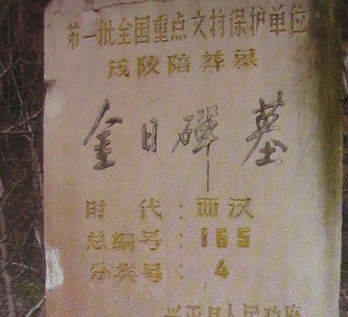 第一批全国重点文物保护单位
茂陵陪葬墓
金日磾墓
时 代：西汉
总编号：165
分类号：4
兴平县人民政府